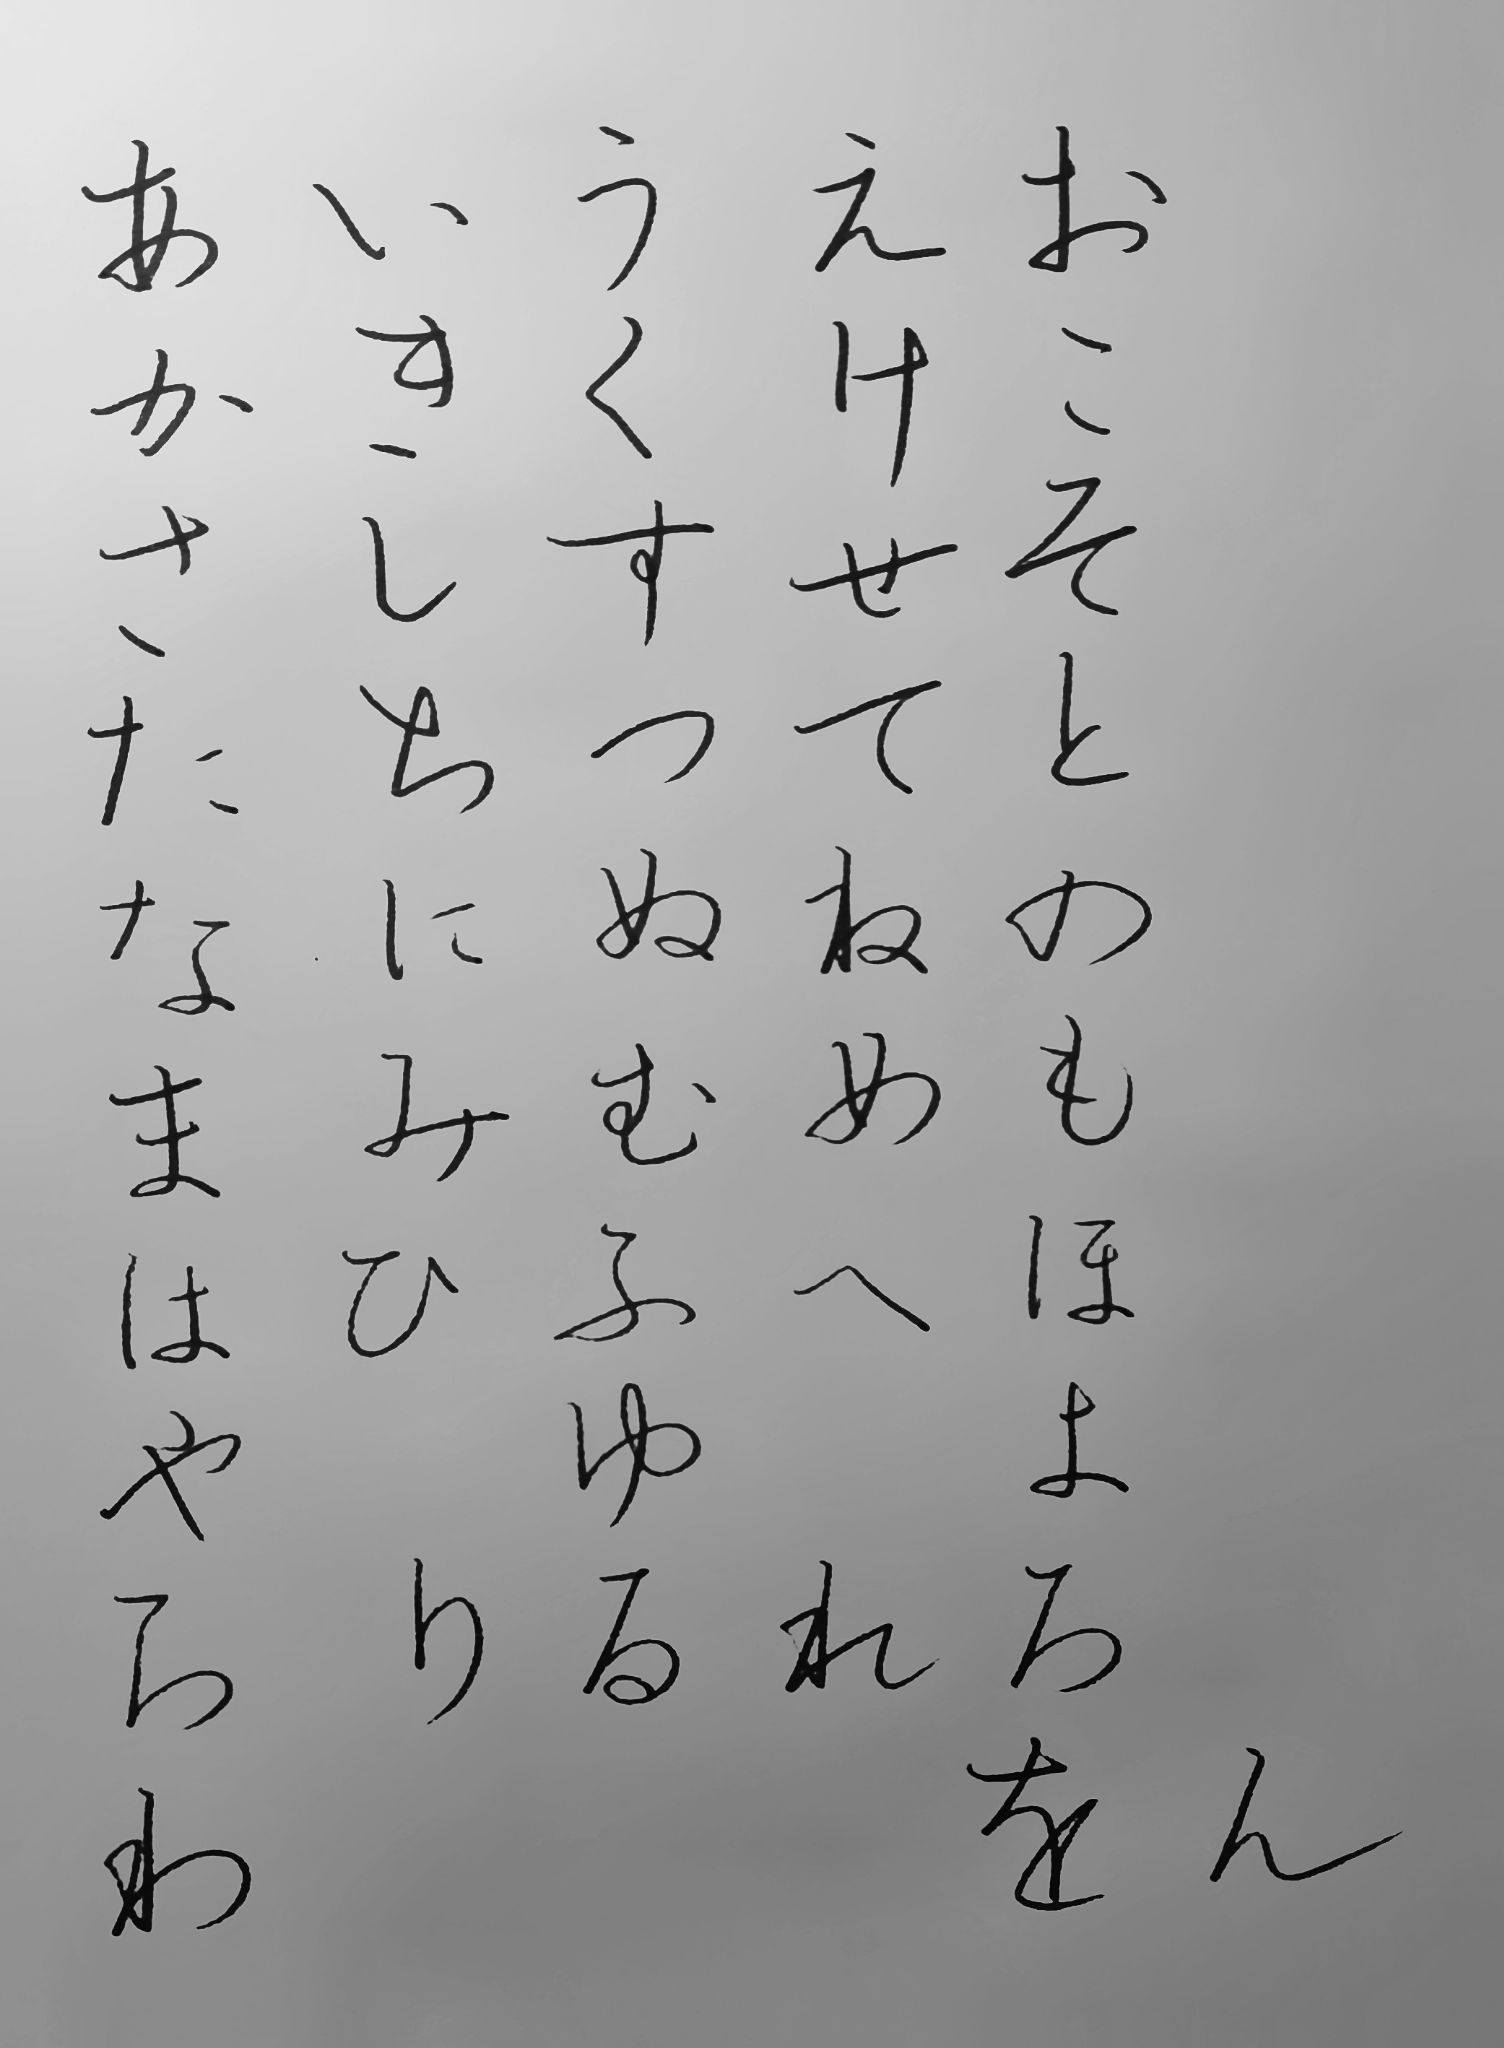 あいうえお
かきくけこ
さしすせそ
たちつてと
なにぬねの
まみむめも
はひふへほ
やゆよ
らりるれろ
わをん